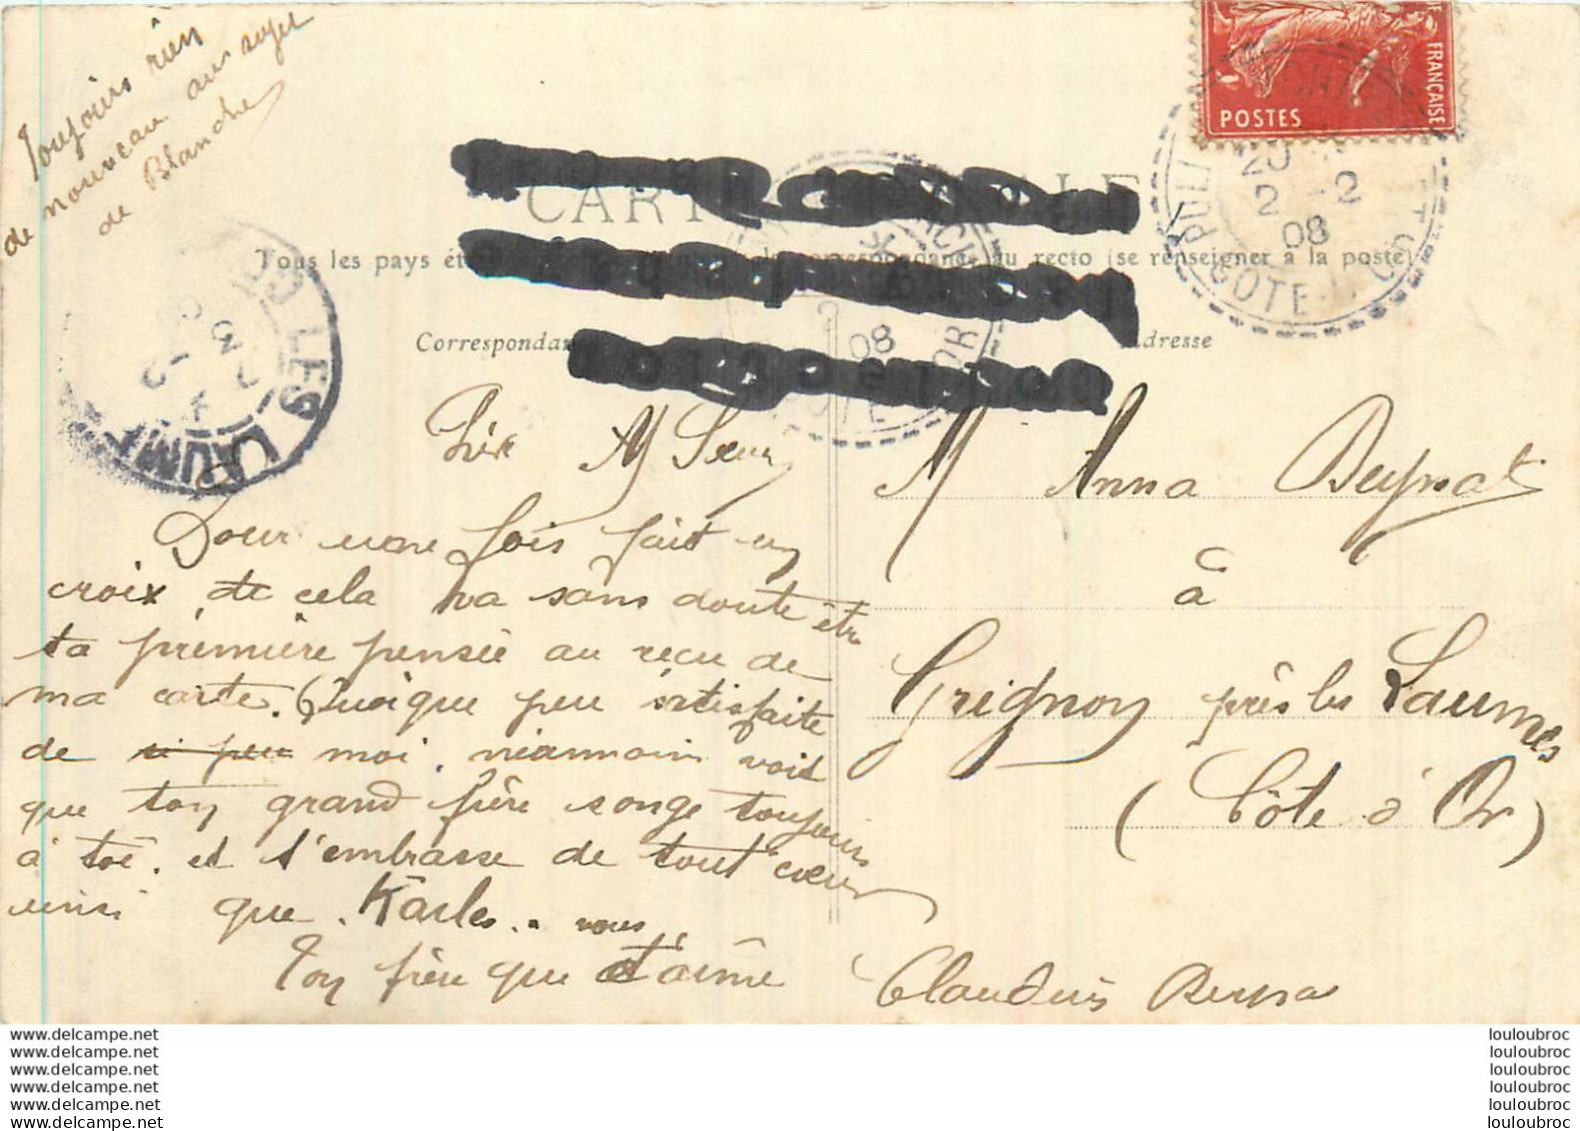 Toujours rien
de nouveau au sujet
de Blanche
FRANÇAISE
POSTES
20
2 - 2
08
COTE D'OR
CARTE POSTALE
Tous les pays correspondance au recto (se renseigner à la poste)
08
LES LAUMES
Correspondance
Adresse
Sœur
Pour une fois fait une
croix, de cela va sans doute être
ta première pensée au reçu de
ma carte. Quoique peu satisfaite
de si peu moi. néanmoins vois
que ton grand frère songe toujours
à toi. et t'embrasse de tout cœur
ainsi que Karles.. vous
Ton frère que t'aime
M Anna Deyrat
à
Grignon près les Laumes
(Côte d'Or)
Claudius
www.delcampe.net
www.delcampe.net
www.delcampe.net
www.delcampe.net
www.delcampe.net
www.delcampe.net
louloubroc
louloubroc
louloubroc
louloubroc
louloubroc
louloubroc